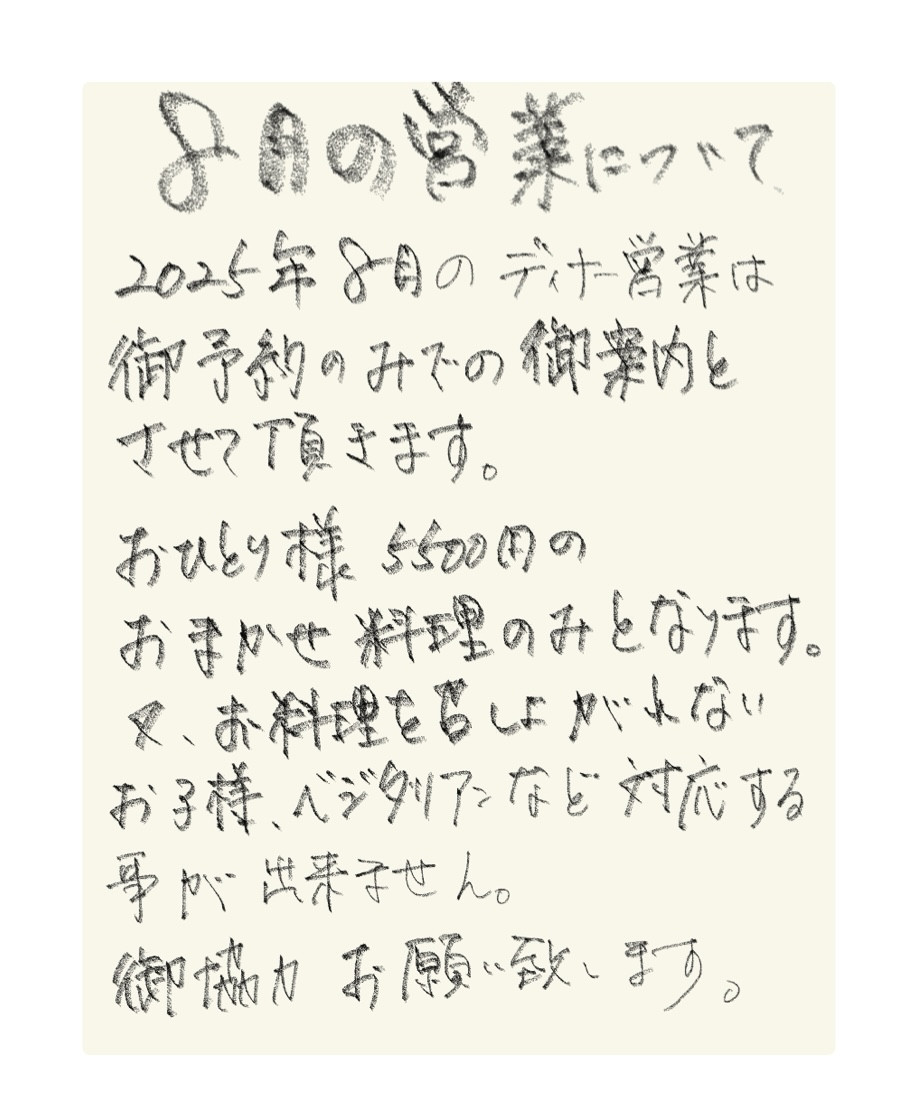 8月の営業について
2025年8月のディナー営業は
御予約のみでの御案内と
させて頂きます。
おひとり様 5500円の
おまかせ料理のみとなります。
又、お料理を召しよがれない
お子様、ベジタリアンなど対応する
事が出来ません。
御協力お願い致します。